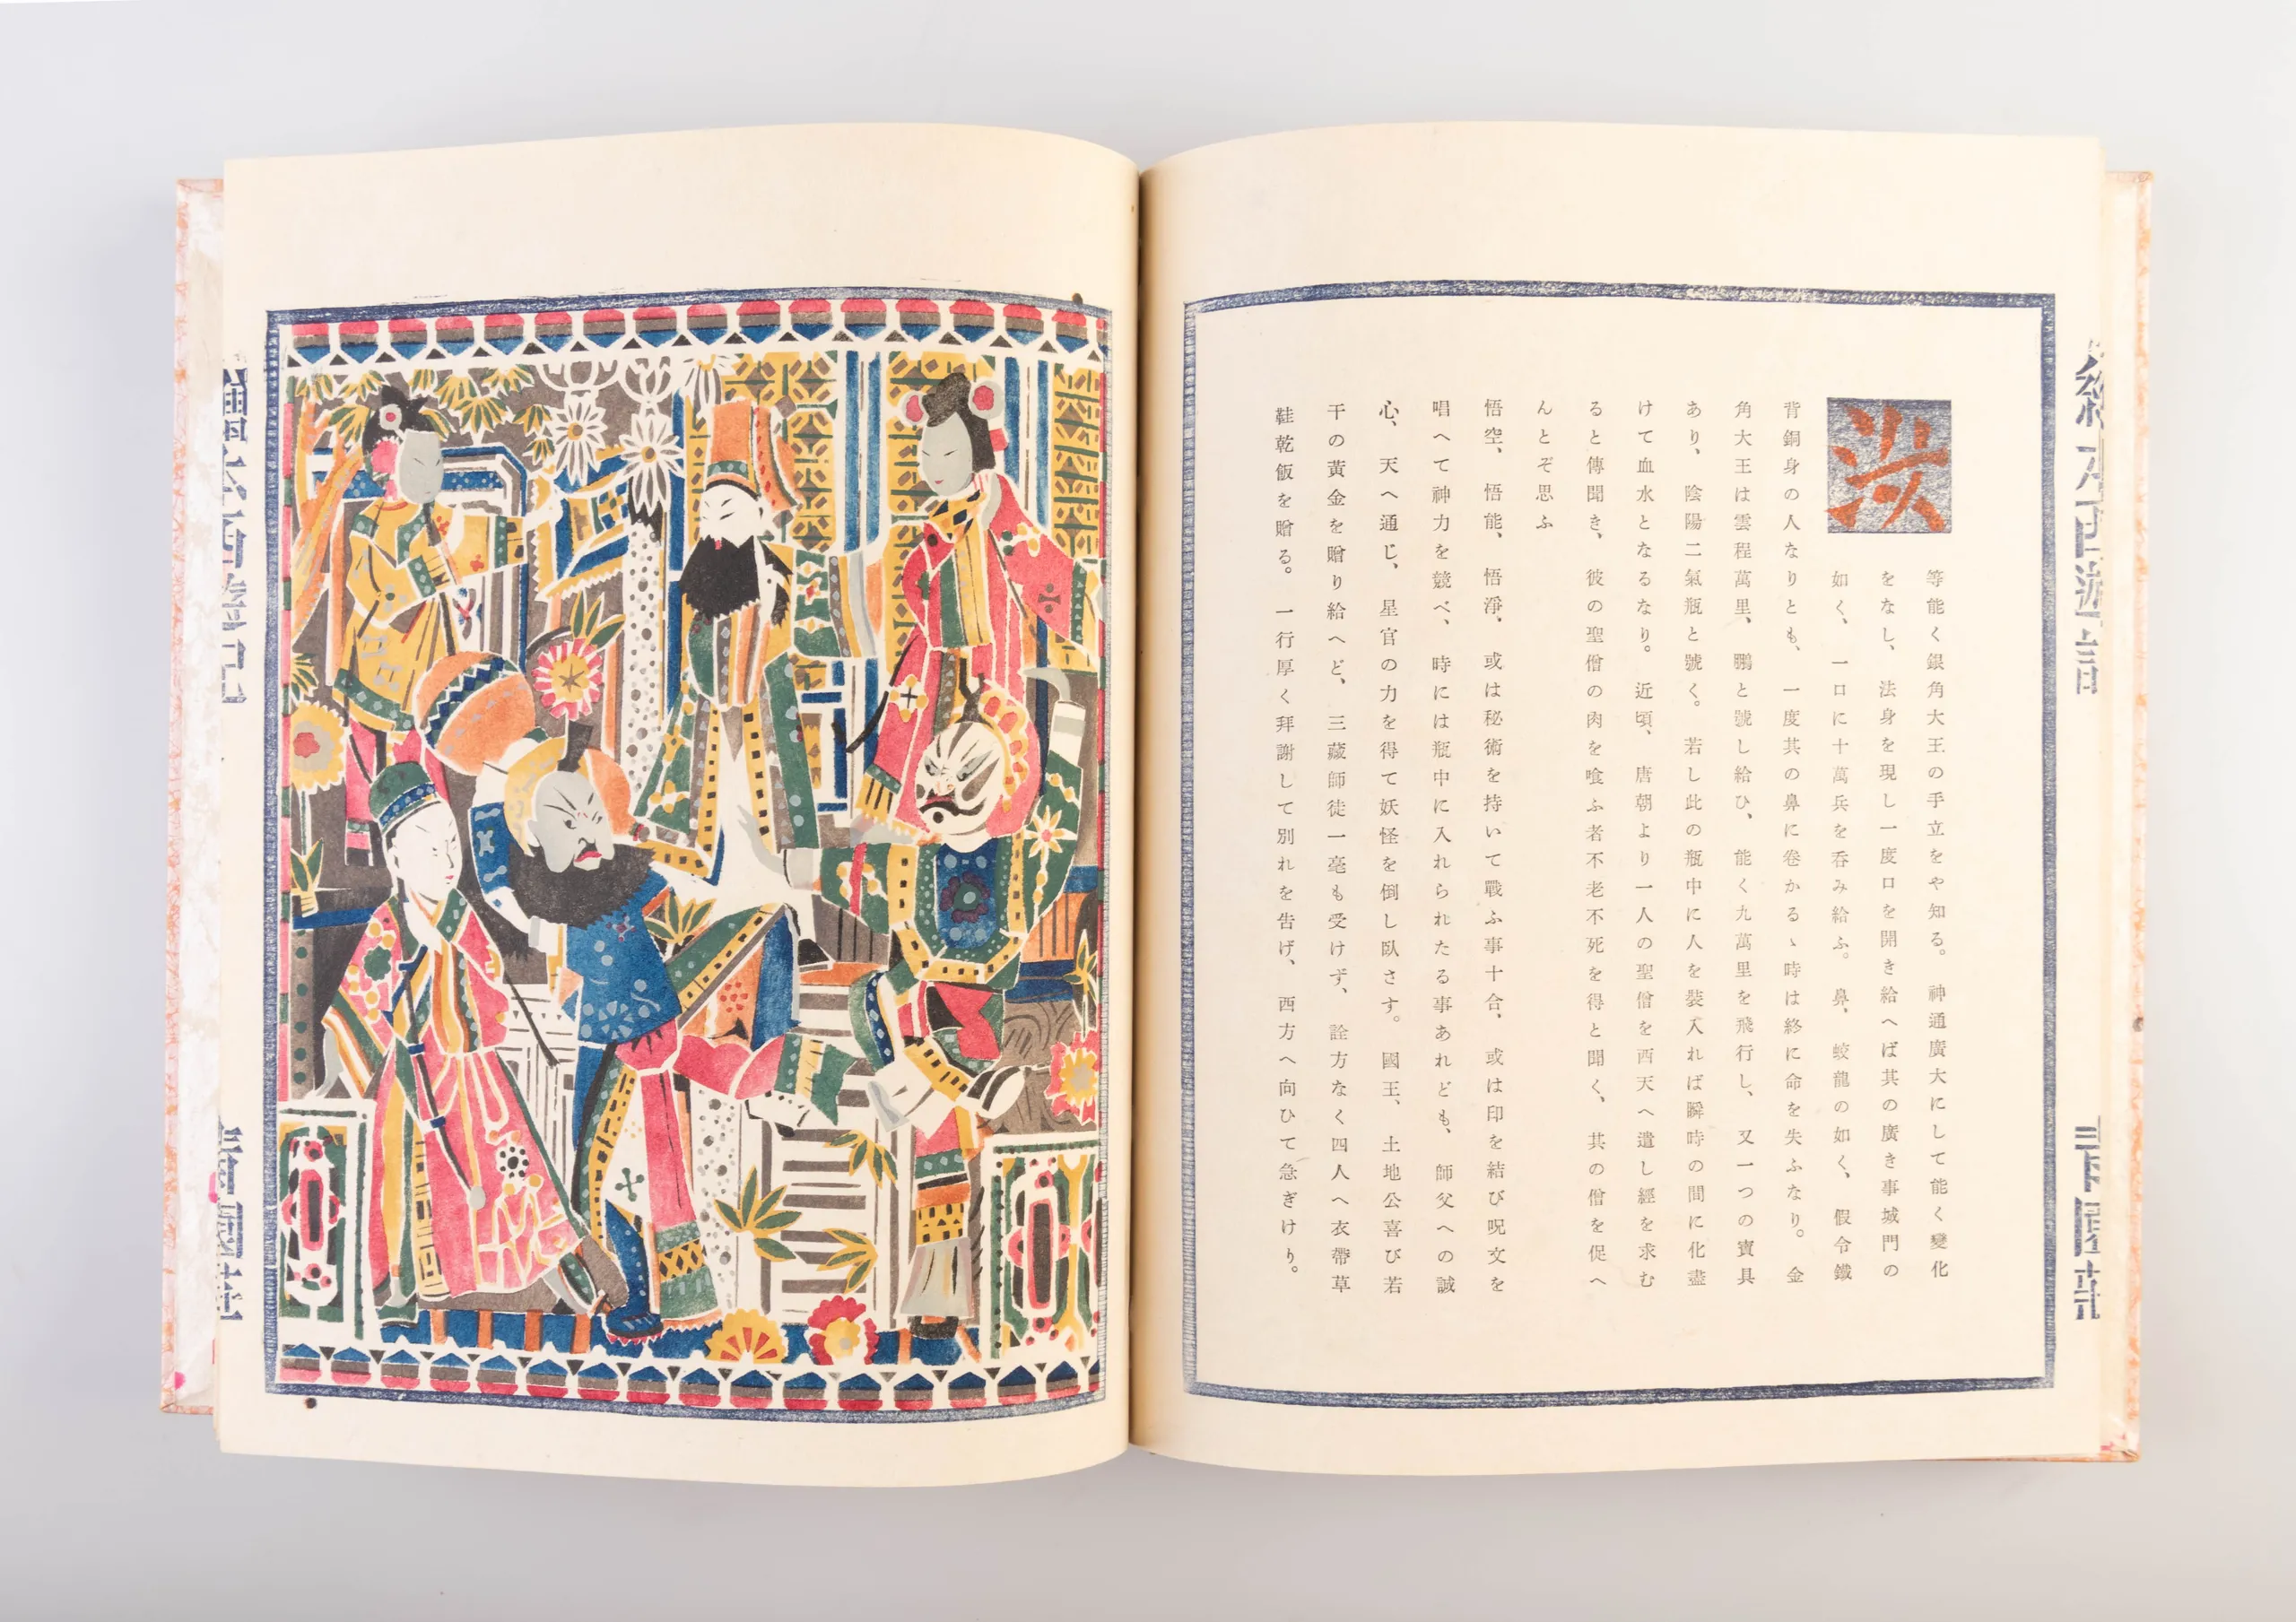 汝
等能く銀角大王の手立をや知る。神通廣大にして能く變化
をなし、法身を現し一度口を開き給へば其の廣き事城門の
如く、一口に十萬兵を呑み給ふ。鼻、蛟龍の如く、假令鐵
背銅身の人なりとも、一度其の鼻に卷かるゝ時は終に命を失ふなり。金
角大王は雲程萬里、鵬と號し給ひ、能く九萬里を飛行し、又一つの寳具
あり、陰陽二氣瓶と號く。若し此の瓶中に人を裝入れば瞬時の間に化盡
けて血水となるなり。近頃、唐朝より一人の聖僧を西天へ遣し經を求む
ると傳聞き、彼の聖僧の肉を喰ふ者不老不死を得と聞く、其の僧を促へ
んとぞ思ふ
悟空、悟能、悟淨、或は秘術を持いて戰ふ事十合、或は印を結び呪文を
唱へて神力を競べ、時には瓶中に入れられたる事あれども、師父への誠
心、天へ通じ、星官の力を得て妖怪を倒し臥さす。國王、土地公喜び若
干の黃金を贈り給へど、三藏師徒一毫も受けず、詮方なく四人へ衣帶草
鞋乾飯を贈る。一行厚く拜謝して別れを告げ、西方へ向ひて急ぎけり。